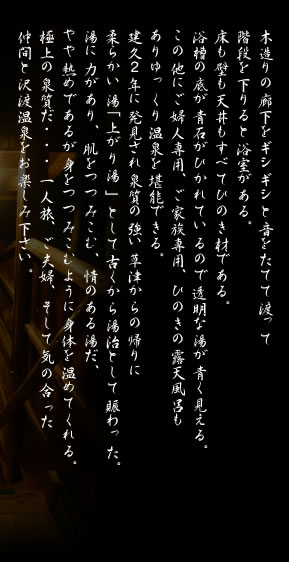 木造りの廊下をギシギシと音をたてて渡って
階段を下りると浴室がある。
床も壁も天井もすべてひのき材である。
浴槽の底が青石がひかれているので透明な湯が青く見える。
この他にご婦人専用、ご家族専用、ひのきの露天風呂も
ありゆっくり温泉を堪能できる。
建久2年に発見され泉質の強い草津からの帰りに
柔らかい湯「上がり湯」として古くから湯治として賑わった。
湯に力があり、肌をつつみこむ 情のある湯だ、
やや熱めであるが身をつつみこむように身体を温めてくれる。
極上の泉質だ・・・一人旅、ご夫婦、そして気の合った
仲間と沢渡温泉をお楽しみ下さい。